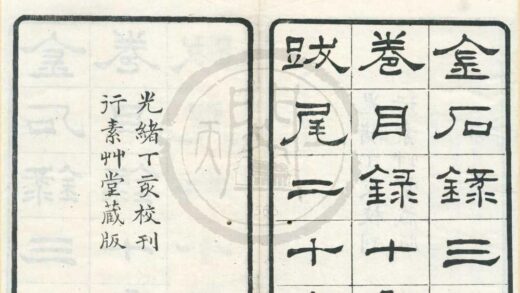 金石錄三
卷目錄十
跋尾二十
光緒丁亥校刊
行素艸堂藏版